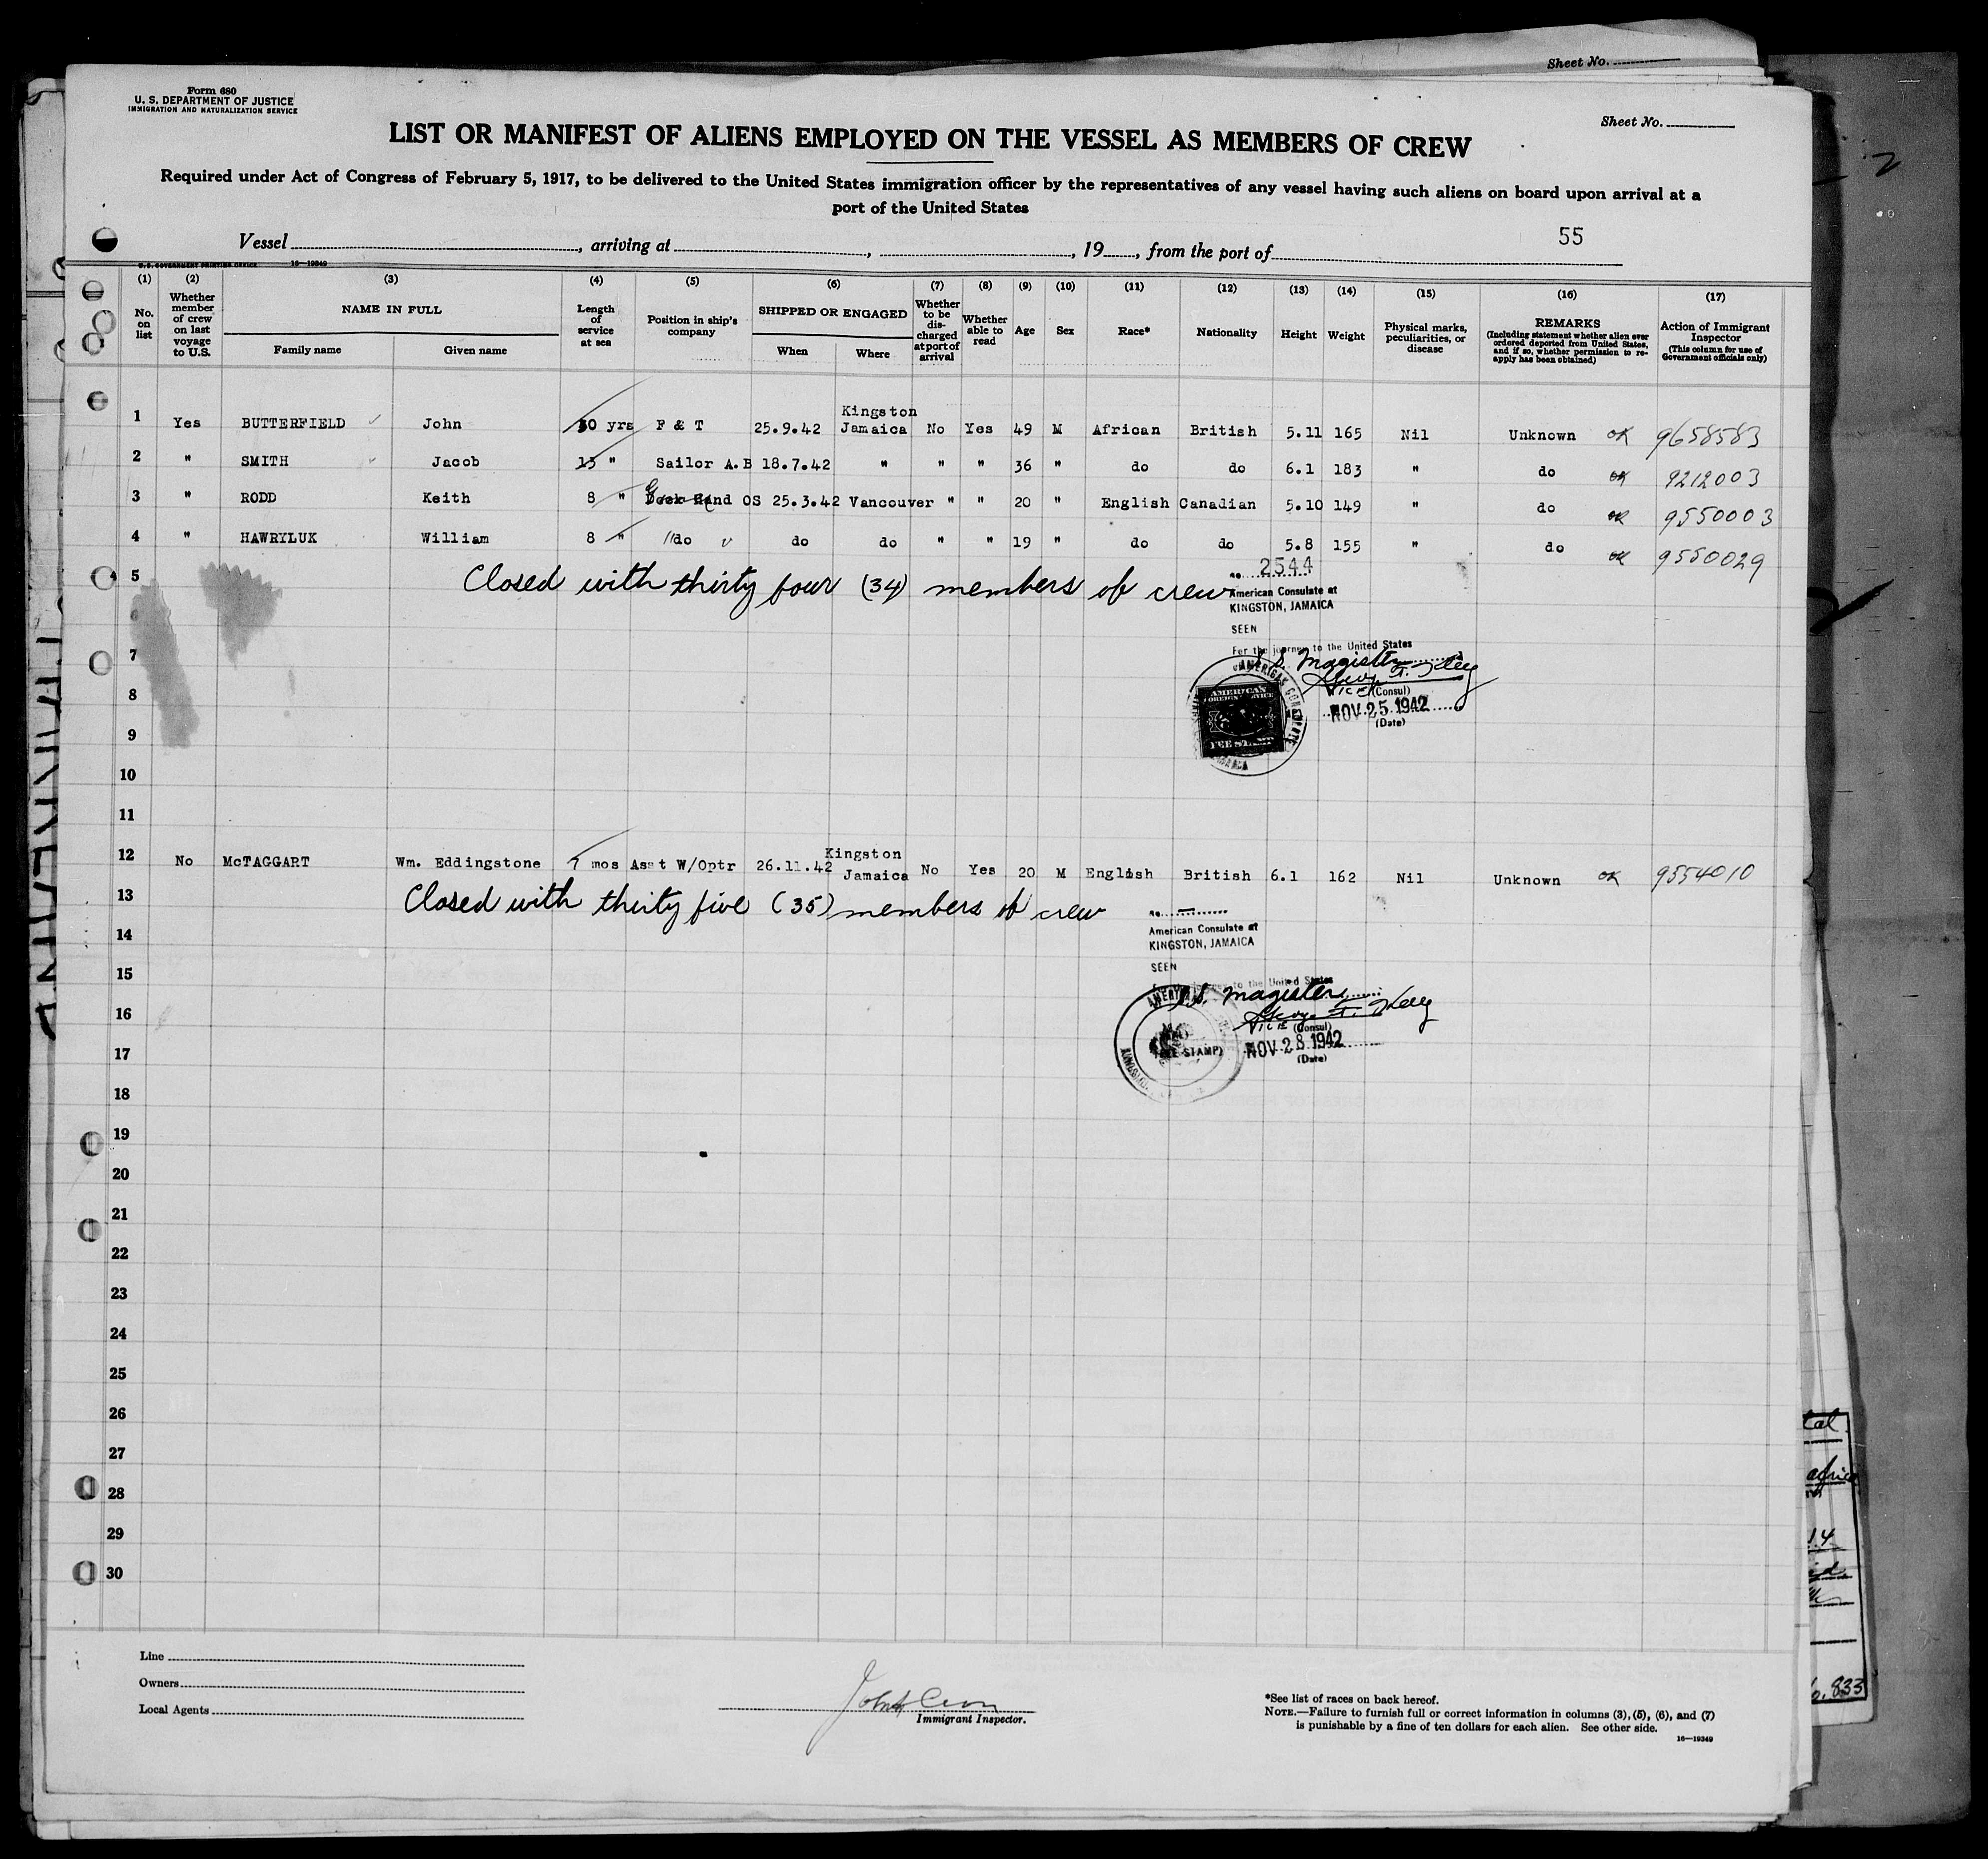 Sheet No.
Form 680
U. S. DEPARTMENT OF JUSTICE
IMMIGRATION AND NATURALIZATION SERVICE
Sheet No.
LIST OR MANIFEST OF ALIENS EMPLOYED ON THE VESSEL AS MEMBERS OF CREW
Required under Act of Congress of February 5, 1917, to be delivered to the United States immigration officer by the representatives of any vessel having such aliens on board upon arrival at a
port of the United States
55
Vessel , arriving at , , 19 , from the port of
U.S. GOVERNMENT PRINTING OFFICE 16—19349
(1) (2) (3) (4) (5) (6) (7) (8) (9) (10) (11) (12) (13) (14) (15) (16) (17)
No. on list
Whether member of crew on last voyage to U.S.
NAME IN FULL
Family name
Given name
Length of service at sea
Position in ship's company
SHIPPED OR ENGAGED
When
Where
Whether to be discharged at port of arrival
Whether able to read
Age
Sex
Race*
Nationality
Height
Weight
Physical marks, peculiarities, or disease
REMARKS
(Including statement whether alien ever ordered deported from United States, and if so, whether permission to reapply has been obtained)
Action of Immigrant Inspector
(This column for use of Government officials only)
1 Yes BUTTERFIELD John 30 yrs F & T 25.9.42 Kingston Jamaica No Yes 49 M African British 5.11 165 Nil Unknown OK 9658583
2 " SMITH Jacob 13 " Sailor A.B 18.7.42 " " " 36 " do do 6.1 183 " do OK 9212003
3 " RODD Keith 8 " Deck Hand OS 25.3.42 Vancouver " " 20 " English Canadian 5.10 149 " do OK 9550003
4 " HAWRYLUK William 8 " " do do do " " 19 " do do 5.8 155 " do OK 9550029
5 Closed with thirty four (34) members of crew
No. 2544
American Consulate at
KINGSTON, JAMAICA
SEEN
For the journey to the United States
S. S. Magister
VICE (Consul)
NOV 25 1942
(Date)
AMERICAN
FOREIGN SERVICE
FEE STAMP
6
7
8
9
10
11
12 No McTAGGART Wm. Eddingstone 7 mos Asst W/Optr 26.11.42 Kingston Jamaica No Yes 20 M English British 6.1 162 Nil Unknown OK 9554010
13 Closed with thirty five (35) members of crew
No. —
American Consulate at
KINGSTON, JAMAICA
SEEN
to the United States
S. S. Magister
VICE (Consul)
NOV 28 1942
(Date)
14
15
16
17
18
19
20
21
22
23
24
25
26
27
28
29
30
Line
Owners
Local Agents
Immigrant Inspector.
*See list of races on back hereof.
NOTE.—Failure to furnish full or correct information in columns (3), (5), (6), and (7)
is punishable by a fine of ten dollars for each alien. See other side.
16—19349